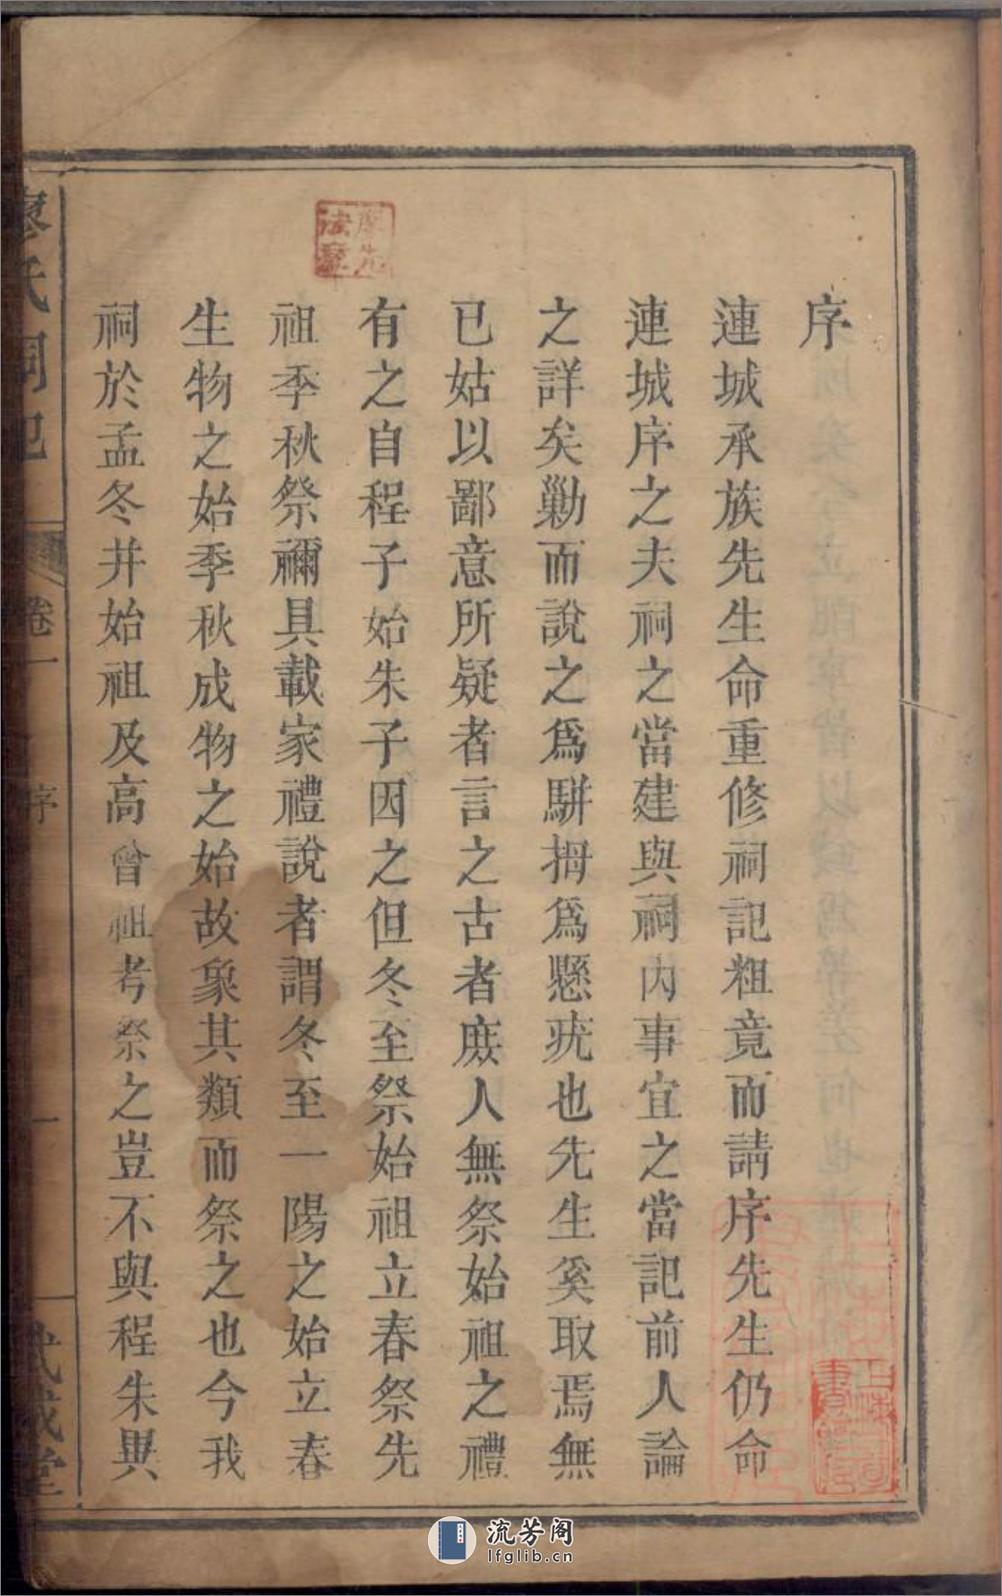 序
連城承族先生命重修祠記粗竟而請序先生仍命
連城序之夫祠之當建與祠內事宜之當記前人論
之詳矣勦而說之爲駢拇爲懸疣也先生奚取焉無
已姑以鄙意所疑者言之古者庶人無祭始祖之禮
有之自程子始朱子因之但冬至祭始祖立春祭先
祖季秋祭禰具載家禮說者謂冬至一陽之始立春
生物之始季秋成物之始故象其類而祭之也今我
祠於孟冬并始祖及高曾祖考祭之豈不與程朱異
廖氏祠記
卷一
序
一
武威堂
流芳阁
lfglib.cn